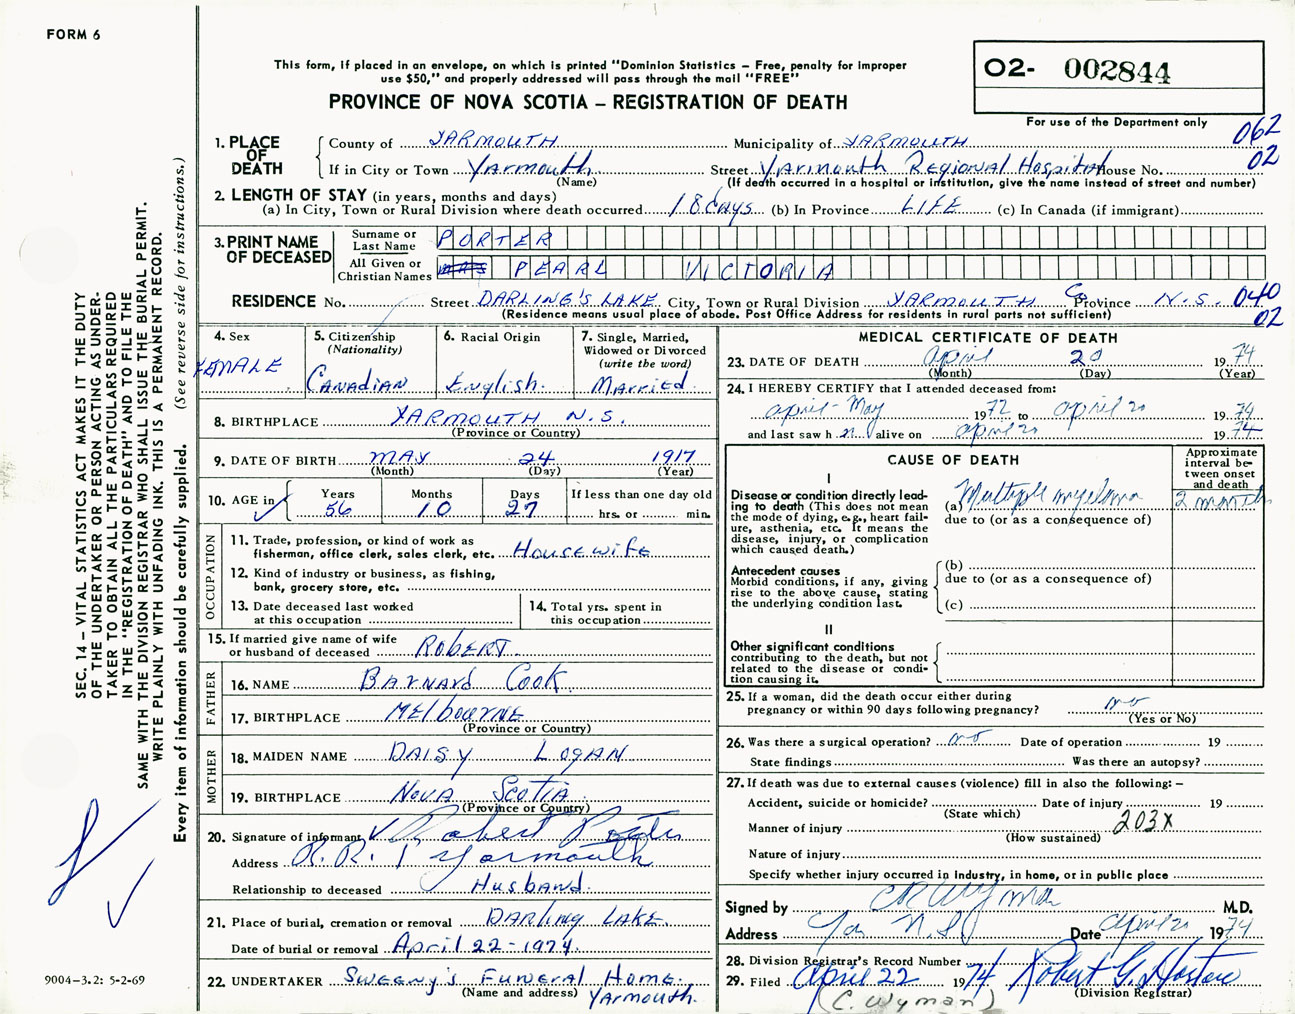 FORM 6
This form, if placed in an envelope, on which is printed "Dominion Statistics – Free, penalty for improper
use $50," and properly addressed will pass through the mail "FREE"
PROVINCE OF NOVA SCOTIA – REGISTRATION OF DEATH
02- 002844
For use of the Department only
062
02
1. PLACE OF DEATH
County of YARMOUTH Municipality of YARMOUTH
If in City or Town Yarmouth Street Yarmouth Regional Hospital House No.
(Name) (If death occurred in a hospital or institution, give the name instead of street and number)
2. LENGTH OF STAY (in years, months and days)
(a) In City, Town or Rural Division where death occurred 18 days (b) In Province LIFE (c) In Canada (if immigrant)
3. PRINT NAME OF DECEASED
Surname or Last Name PORTER
All Given or Christian Names PEARL VICTORIA
RESIDENCE No. Street DARLING'S LAKE City, Town or Rural Division YARMOUTH Co Province N.S. 040
02
(Residence means usual place of abode. Post Office Address for residents in rural parts not sufficient)
4. Sex
FEMALE
5. Citizenship
(Nationality)
Canadian
6. Racial Origin
English
7. Single, Married,
Widowed or Divorced
(write the word)
Married
8. BIRTHPLACE YARMOUTH N.S.
(Province or Country)
9. DATE OF BIRTH MAY 24 1917
(Month) (Day) (Year)
10. AGE in
Years 56 Months 10 Days 27
If less than one day old
hrs. or min.
OCCUPATION
11. Trade, profession, or kind of work as
fisherman, office clerk, sales clerk, etc. Housewife
12. Kind of industry or business, as fishing,
bank, grocery store, etc.
13. Date deceased last worked
at this occupation
14. Total yrs. spent in
this occupation
15. If married give name of wife
or husband of deceased ROBERT
FATHER
16. NAME Barnard Cook
17. BIRTHPLACE Melbourne
(Province or Country)
MOTHER
18. MAIDEN NAME DAISY LOGAN
19. BIRTHPLACE Nova Scotia
(Province or Country)
20. Signature of informant Robert Porter
Address R.R. 1 Yarmouth
Relationship to deceased Husband
21. Place of burial, cremation or removal Darling LAKE.
Date of burial or removal April 22-1974.
22. UNDERTAKER Sweeny's Funeral Home.
(Name and address) Yarmouth.
MEDICAL CERTIFICATE OF DEATH
23. DATE OF DEATH April 20 1974
(Month) (Day) (Year)
24. I HEREBY CERTIFY that I attended deceased from:
april - May 1972 to april 20 1974
and last saw h alive on april 20 1974
CAUSE OF DEATH
Approximate
interval be-
tween onset
and death
I
Disease or condition directly lead-
ing to death (This does not mean
the mode of dying, e.g., heart fail-
ure, asthenia, etc. It means the
disease, injury, or complication
which caused death.)
(a) Multiple myeloma 2 months
due to (or as a consequence of)
Antecedent causes
Morbid conditions, if any, giving
rise to the above cause, stating
the underlying condition last.
(b)
due to (or as a consequence of)
(c)
II
Other significant conditions
contributing to the death, but not
related to the disease or condi-
tion causing it.
25. If a woman, did the death occur either during
pregnancy or within 90 days following pregnancy? no
(Yes or No)
26. Was there a surgical operation? no Date of operation 19
State findings Was there an autopsy?
27. If death was due to external causes (violence) fill in also the following: –
Accident, suicide or homicide? Date of injury 19
(State which)
Manner of injury 203X
(How sustained)
Nature of injury
Specify whether injury occurred in industry, in home, or in public place
Signed by CR Wyman M.D.
Address Yar N.S Date april 20 1974
28. Division Registrar's Record Number
29. Filed April 22 1974 Robert G.
(C. Wyman) (Division Registrar)
SEC. 14 – VITAL STATISTICS ACT MAKES IT THE DUTY
OF THE UNDERTAKER OR PERSON ACTING AS UNDER-
TAKER TO OBTAIN ALL THE PARTICULARS REQUIRED
IN THE "REGISTRATION OF DEATH" AND TO FILE THE
SAME WITH THE DIVISION REGISTRAR WHO SHALL ISSUE THE BURIAL PERMIT.
WRITE PLAINLY WITH UNFADING INK. THIS IS A PERMANENT RECORD.
Every item of information should be carefully supplied. (See reverse side for instructions.)
9004-3.2: 5-2-69